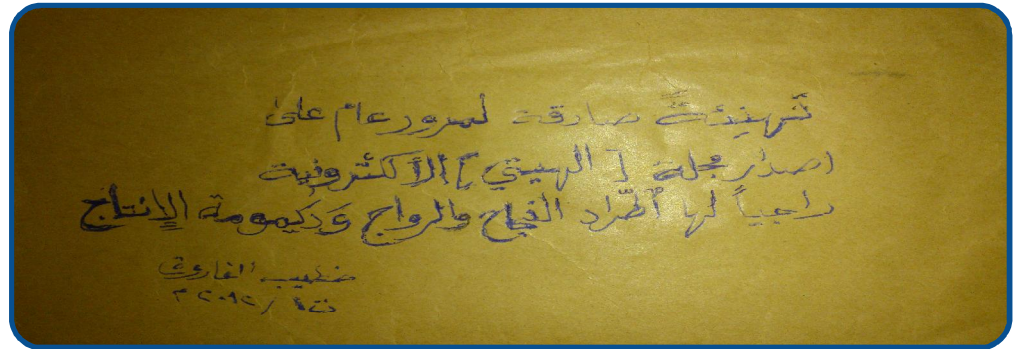 تَهنِئةً صادقة لمرور عام على
اصدار مجلة [الهيتي] الألكترونية
راجياً لها أطّراد النجاح والرواج وَديمومة الإنتاج
خطيب الفاروق
ت١ / ٢٠١٢ م